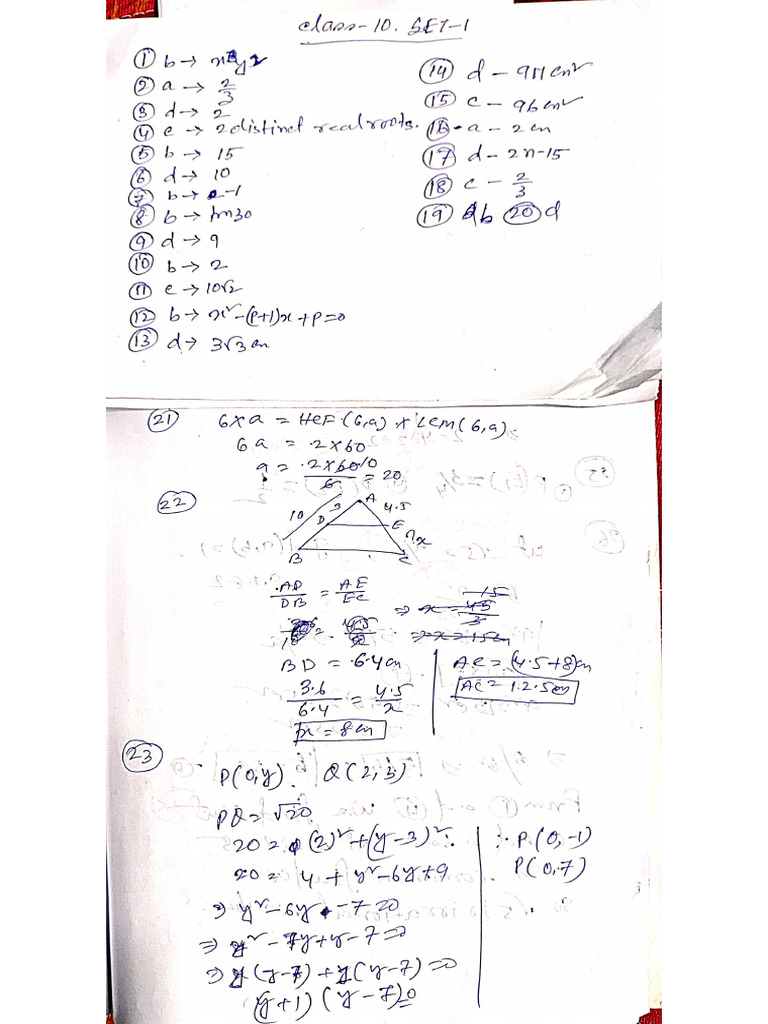 class-10. SET-1
① b → x²y²
② a → 2/3
③ d → 2
④ c → 2 distinct real roots.
⑤ b → 15
⑥ d → 10
⑦ b → -1
⑧ b → tan30
⑨ d → 9
⑩ b → 2
⑪ c → 10√2
⑫ b → x² - (p+1)x + p = 0
⑬ d → 3√3 cm
⑭ d - 9π cm²
⑮ c - 96 cm²
⑯ a - 2 cm
⑰ d - 2n-15
⑱ c - 2/3
⑲ b ⑳ d
㉑ 6 x a = HCF (6,a) x LCM (6,a).
6a = 2 x 60
a = 2 x 60 10 / 6 = 20
㉒
A
10 3 4.5
D E
x
B C
AD/DB = AE/EC
⇒ x = 45/3 15
⇒ x = 15cm
BD = 6.4 cm
3.6/6.4 = 4.5/x
x = 8 cm
AC = (4.5+8)cm
AC = 12.5cm
㉓ P(0,y) Q(2,3)
PQ = √20
20 = (2)² + (y-3)²
20 = 4 + y² - 6y + 9
⇒ y² - 6y - 7 = 0
⇒ y² - 7y + y - 7 = 0
⇒ y(y-7) + 1(y-7) = 0
(y+1) (y-7) = 0
∴ P(0,-1)
P(0,7)